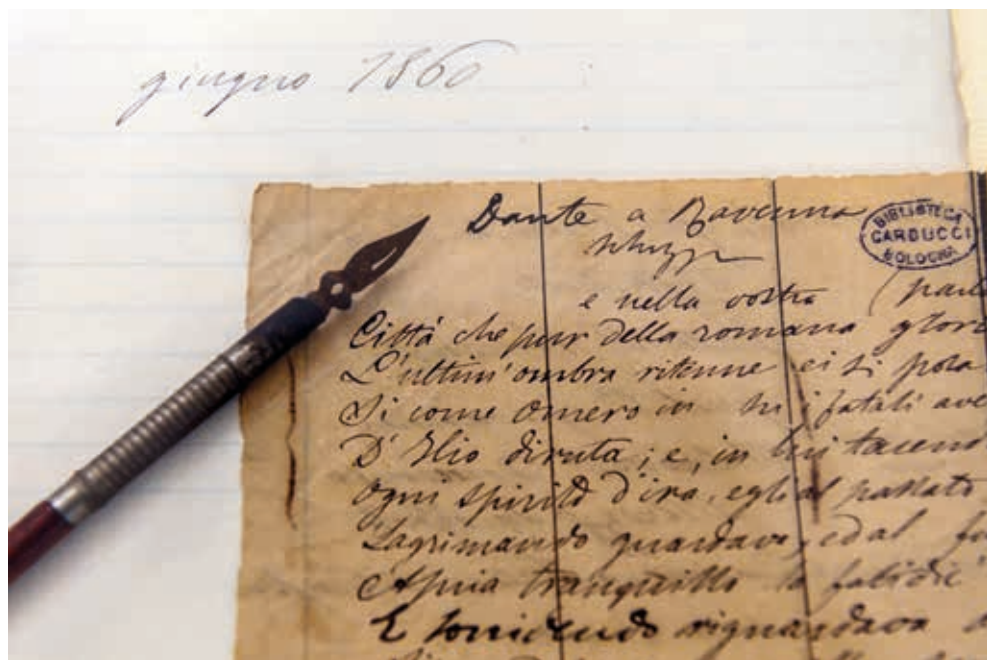 giugno 1860
Dante a Ravenna
BIBLIOTECA
CARDUCCI
BOLOGNA
e nella vostra (parl
Città che pur della romana glori
L'ultim'ombra ritenne, ei si posa
Sì come Omero in su i fatali ave
D'Ilio diruta; e, in lui tacend
Ogni spirito d'ira, egli al passato
Lagrimando guardava, ed al fu
Apria tranquillo le fatidic
E sorridendo riguardava